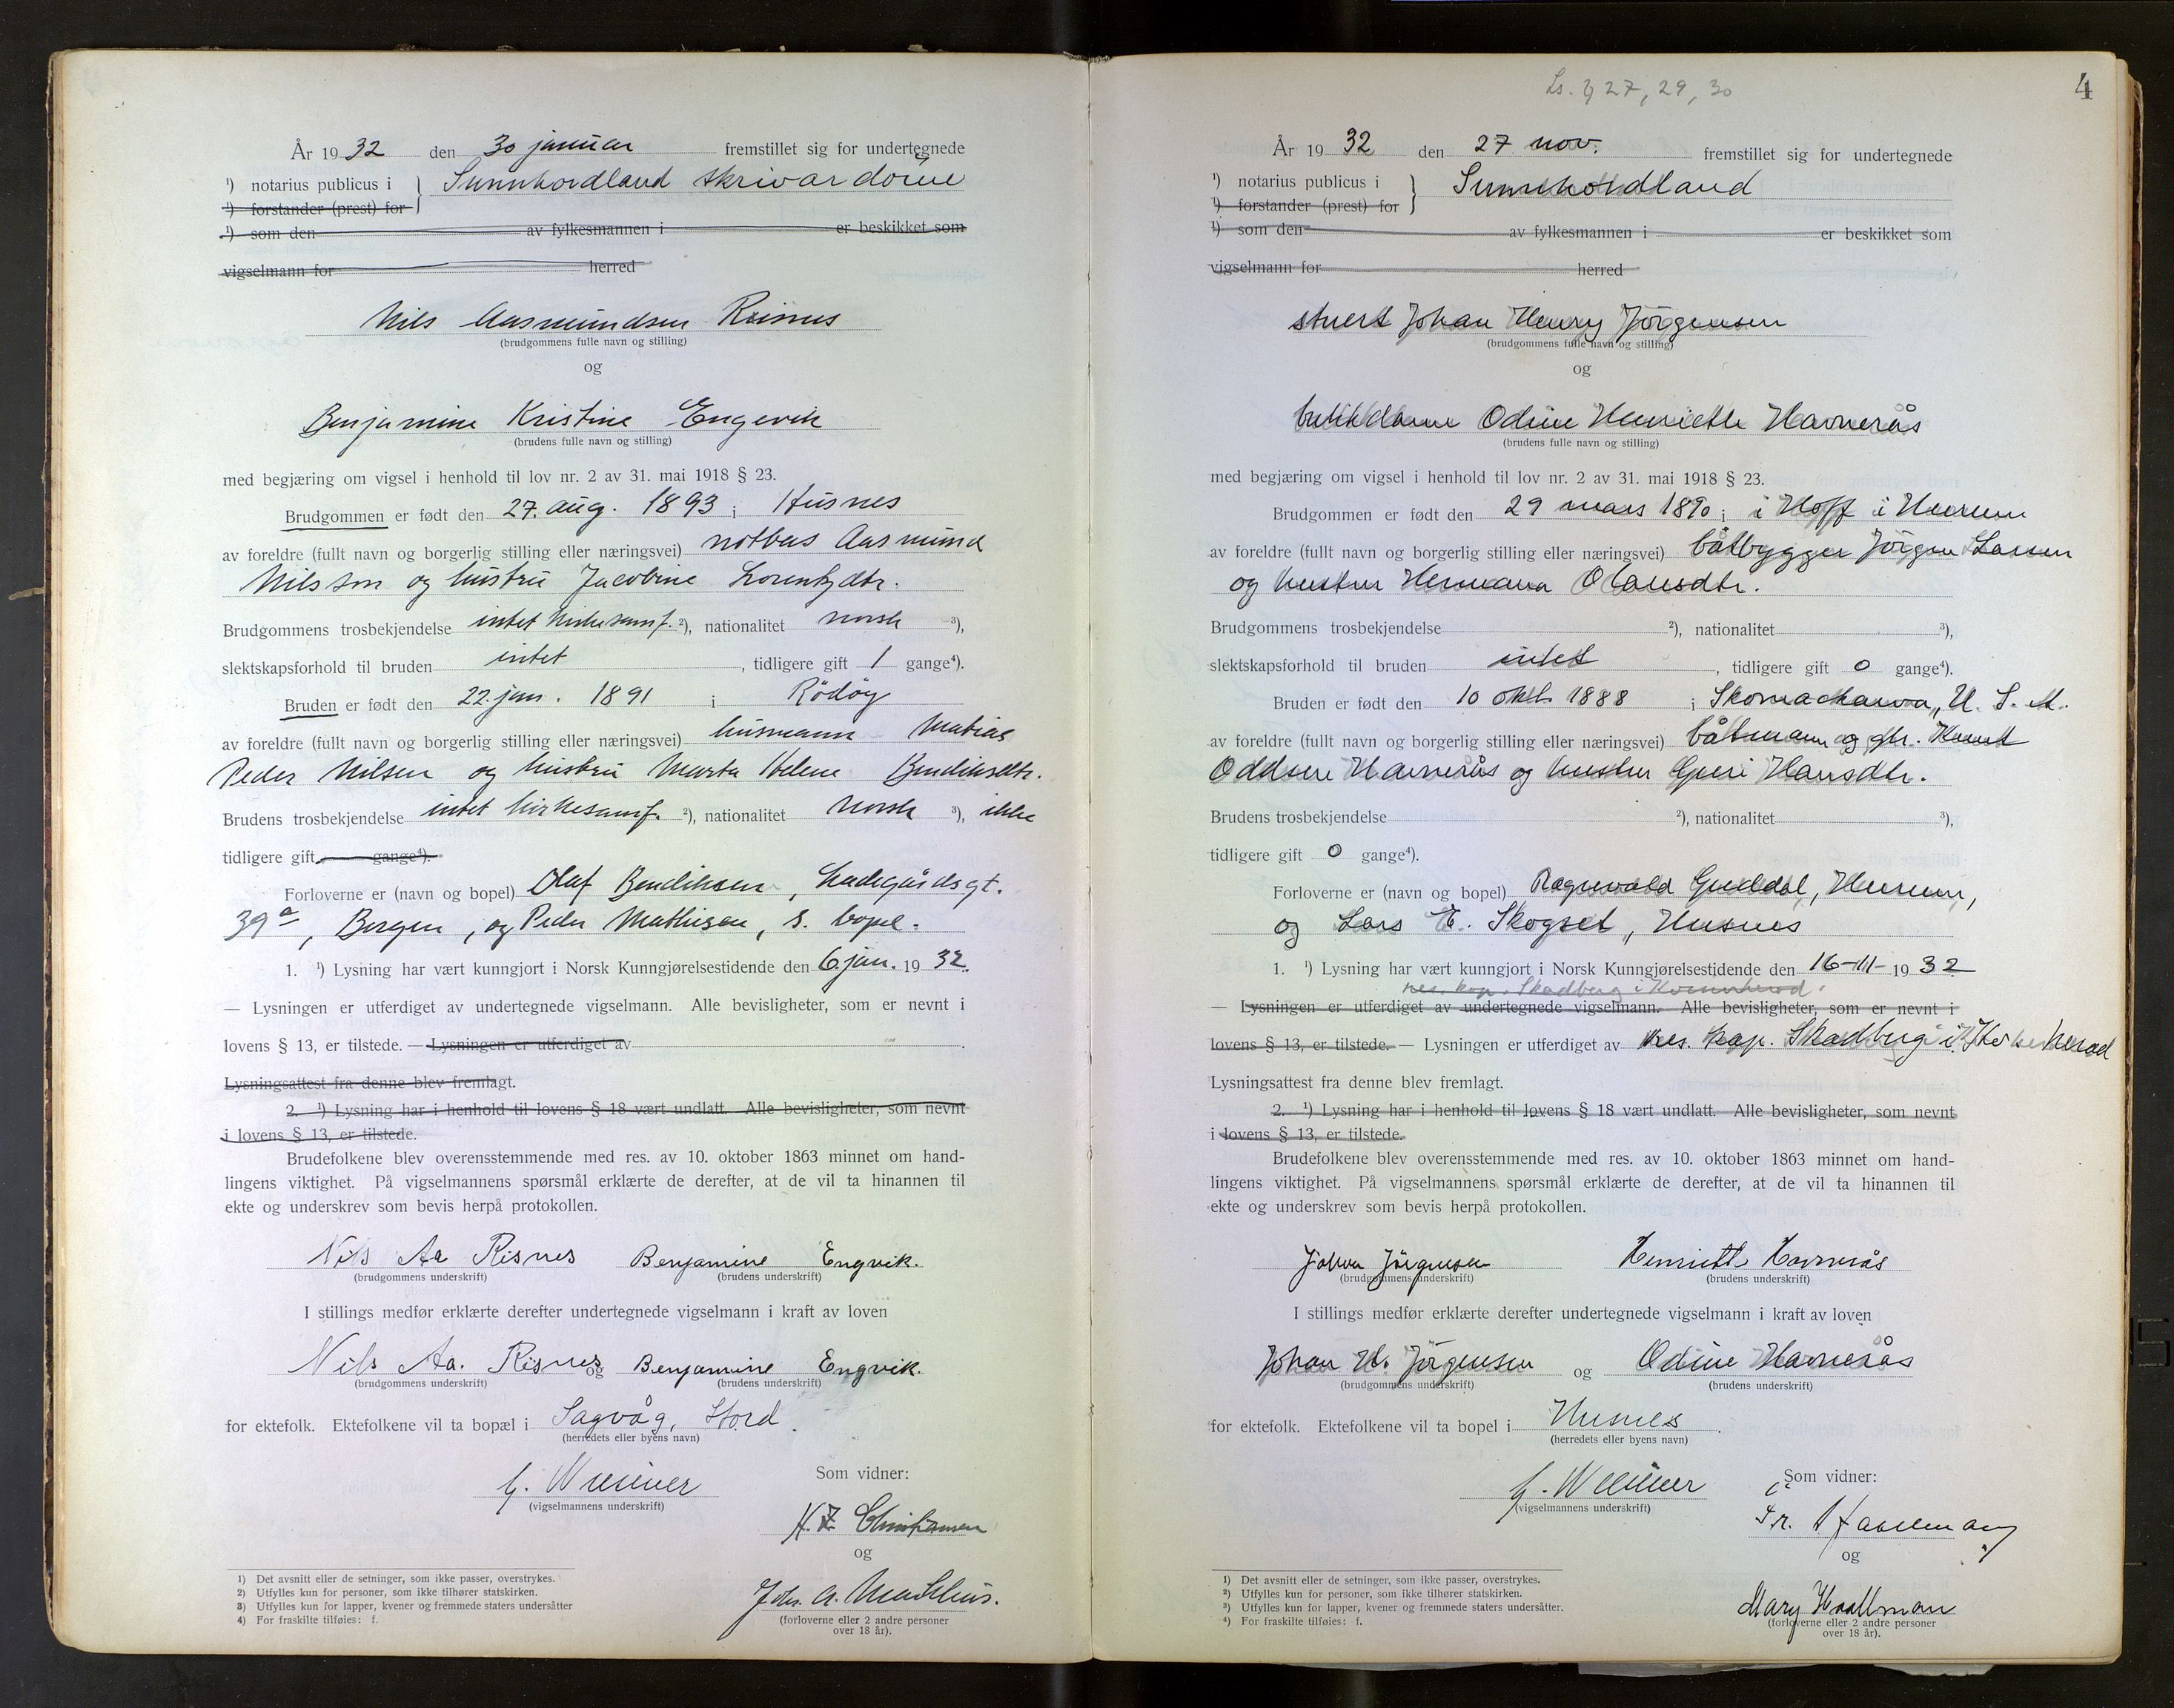 År 19 32 den 30 januar fremstillet sig for undertegnede
¹) notarius publicus i } Sunnhordland skrivardöme
¹) forstander (prest) for
¹) som den av fylkesmannen i er beskikket som
vigselmann for herred
Nils Aasmundsen Risnes
(brudgommens fulle navn og stilling)
og
Benjamine Kristine Engevik
(brudens fulle navn og stilling)
med begjæring om vigsel i henhold til lov nr. 2 av 31. mai 1918 § 23.
Brudgommen er født den 27. aug. 1893 i Husnes
av foreldre (fullt navn og borgerlig stilling eller næringsvei) notbas Aasmund
Nilsson og hustru Jacobine Lorentzdtr.
Brudgommens trosbekjendelse intet kirkesamf. ²), nationalitet norsk ³),
slektskapsforhold til bruden intet, tidligere gift 1 gange⁴).
Bruden er født den 22. jan. 1891 i Rödöy
av foreldre (fullt navn og borgerlig stilling eller næringsvei) husmann Matias
Peder Nilsen og hustru Marta Helene Bendiksdtr.
Brudens trosbekjendelse intet kirkesamf. ²), nationalitet norsk ³), ikke
tidligere gift gange⁴).
Forloverne er (navn og bopel) Olaf Bendiksen, Ladegårdsgt.
39ª, Bergen, og Peder Mathisen, s. bopel.
1. ¹) Lysning har vært kunngjort i Norsk Kunngjørelsestidende den 6. jan. 19 32.
— Lysningen er utferdiget av undertegnede vigselmann. Alle bevisligheter, som er nevnt i
lovens § 13, er tilstede. — Lysningen er utferdiget av .
Lysningsattest fra denne blev fremlagt.
2. ¹) Lysning har i henhold til lovens § 18 vært undlatt. Alle bevisligheter, som nevnt
i lovens § 13, er tilstede.
Brudefolkene blev overensstemmende med res. av 10. oktober 1863 minnet om hand-
lingens viktighet. På vigselmannens spørsmål erklærte de derefter, at de vil ta hinannen til
ekte og underskrev som bevis herpå protokollen.
Nils Aa Risnes Benjamine Engvik.
(brudgommens underskrift) (brudens underskrift)
I stillings medfør erklærte derefter undertegnede vigselmann i kraft av loven
Nils Aa. Risnes og Benjamine Engvik.
(brudgommens underskrift) (brudens underskrift)
for ektefolk. Ektefolkene vil ta bopæl i Sagvåg, Stord.
(herredets eller byens navn)
Som vidner:
(vigselmannens underskrift)
Christiansen
og
Joh. A. Mathius.
(forloverne eller 2 andre personer
over 18 år).
1) Det avsnitt eller de setninger, som ikke passer, overstrykes.
2) Utfylles kun for personer, som ikke tilhører statskirken.
3) Utfylles kun for lapper, kvener og fremmede staters undersåtter
4) For fraskilte tilføies: f.
4
27, 29, 30
År 19 32 den 27 nov. fremstillet sig for undertegnede
¹) notarius publicus i } Sunnhordland
¹) forstander (prest) for
¹) som den av fylkesmannen i er beskikket som
vigselmann for herred
stuert Johan Henry Jörgensen
(brudgommens fulle navn og stilling)
og
butikkdame Odine Henriette Havnerås
(brudens fulle navn og stilling)
med begjæring om vigsel i henhold til lov nr. 2 av 31. mai 1918 § 23.
Brudgommen er født den 29 mars 1890 i i Hoff i Hurum
av foreldre (fullt navn og borgerlig stilling eller næringsvei) båtbygger Jörgen Larsen
og hustru Hermana Olausdtr.
Brudgommens trosbekjendelse ²), nationalitet ³),
slektskapsforhold til bruden intet, tidligere gift 0 gange⁴).
Bruden er født den 10 okt. 1888 i Skomackawa, U. S. A.
av foreldre (fullt navn og borgerlig stilling eller næringsvei) båtmann og gbr. Knut
Oddsen Havnerås og hustru Guri Hansdtr.
Brudens trosbekjendelse ²), nationalitet ³),
tidligere gift 0 gange⁴).
Forloverne er (navn og bopel) Ragnvald Guddal, Hurum,
og Lars E. Skogset, Husnes
1. ¹) Lysning har vært kunngjort i Norsk Kunngjørelsestidende den 16-III- 19 32
res. kap. Skadberg i Kvinnherad.
— Lysningen er utferdiget av undertegnede vigselmann. Alle bevisligheter, som er nevnt i
lovens § 13, er tilstede. — Lysningen er utferdiget av res. kap. Skadberg i
Lysningsattest fra denne blev fremlagt.
2. ¹) Lysning har i henhold til lovens § 18 vært undlatt. Alle bevisligheter, som nevnt
i lovens § 13, er tilstede.
Brudefolkene blev overensstemmende med res. av 10. oktober 1863 minnet om hand-
lingens viktighet. På vigselmannens spørsmål erklærte de derefter, at de vil ta hinannen til
ekte og underskrev som bevis herpå protokollen.
Johan Jörgensen Henriette Havnerås
(brudgommens underskrift) (brudens underskrift)
I stillings medfør erklærte derefter undertegnede vigselmann i kraft av loven
Johan H. Jörgensen og Odine Havnerås
(brudgommens underskrift) (brudens underskrift)
for ektefolk. Ektefolkene vil ta bopel i Husnes.
(herredets eller byens navn)
Som vidner:
(vigselmannens underskrift)
Fr.
og
Mary Haallman
(forloverne eller 2 andre personer
over 18 år).
¹) Det avsnitt eller de setninger, som ikke passer, overstrykes.
²) Utfylles kun for personer, som ikke tilhører statskirken.
³) Utfylles kun for lapper, kvener og fremmede staters undersåtter.
⁴) For fraskilte tilføies: f.